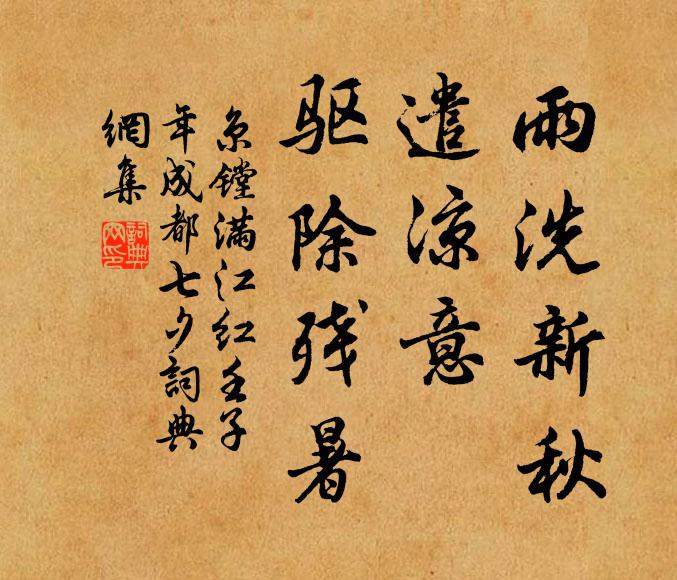 雨洗新秋
遣凉意
驱除残暑
京镗满江红壬子
年成都七夕詞典
網集
詞典
网印